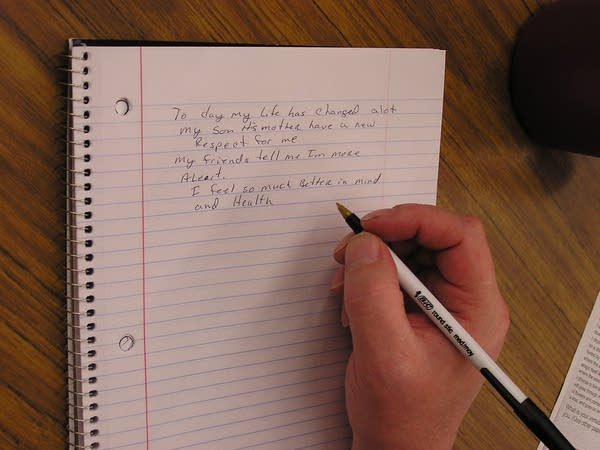 To day my Life has changed alot
my Son Hs mother have a new
Respect for me
my friends tell me I'm more
Aleart.
I feel so much Better in mind
and Health
BIC round stic med/moy